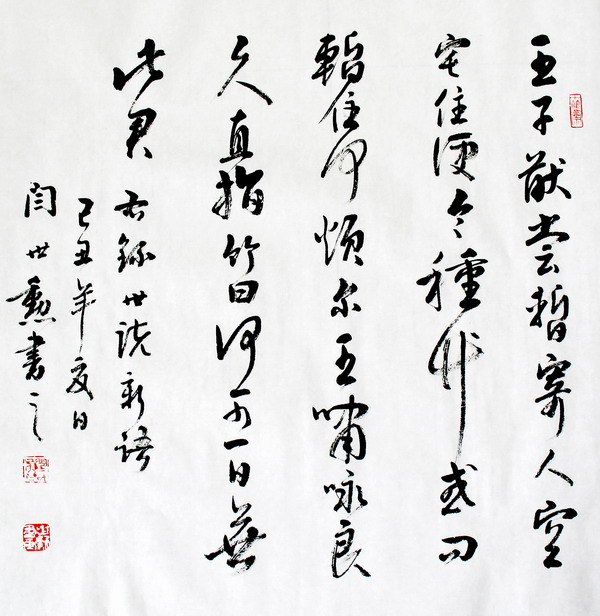 王子猷尝暫寄人空
宅住便令種竹或问
暫住何煩尔王嘯咏良
久直指竹曰何可一日無
此君 右錄世說新語
己丑年夏日
闫世勳書之